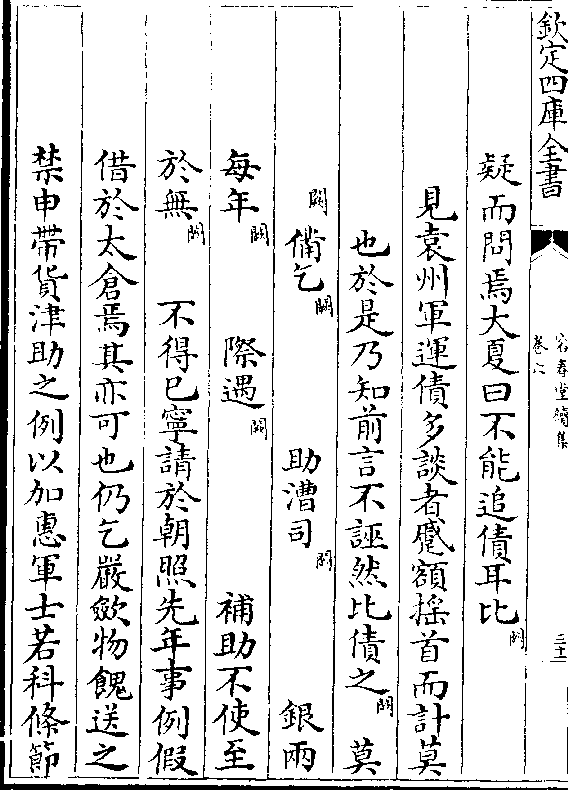 欽定四庫全書
容春堂續集
卷六
三十二
疑而問焉大夏曰不能追債耳比闕
見袁州軍運債多談者蹙額搖首而計莫
也於是乃知前言不誣然比債之闕莫
闕備乞闕助漕司闕銀兩
每年闕際遇闕補助不使至
於無闕不得已寧請於朝照先年事例假
借於太倉焉其亦可也仍乞嚴歛物餽送之
禁申帶貨津助之例以加惠軍士若科條節